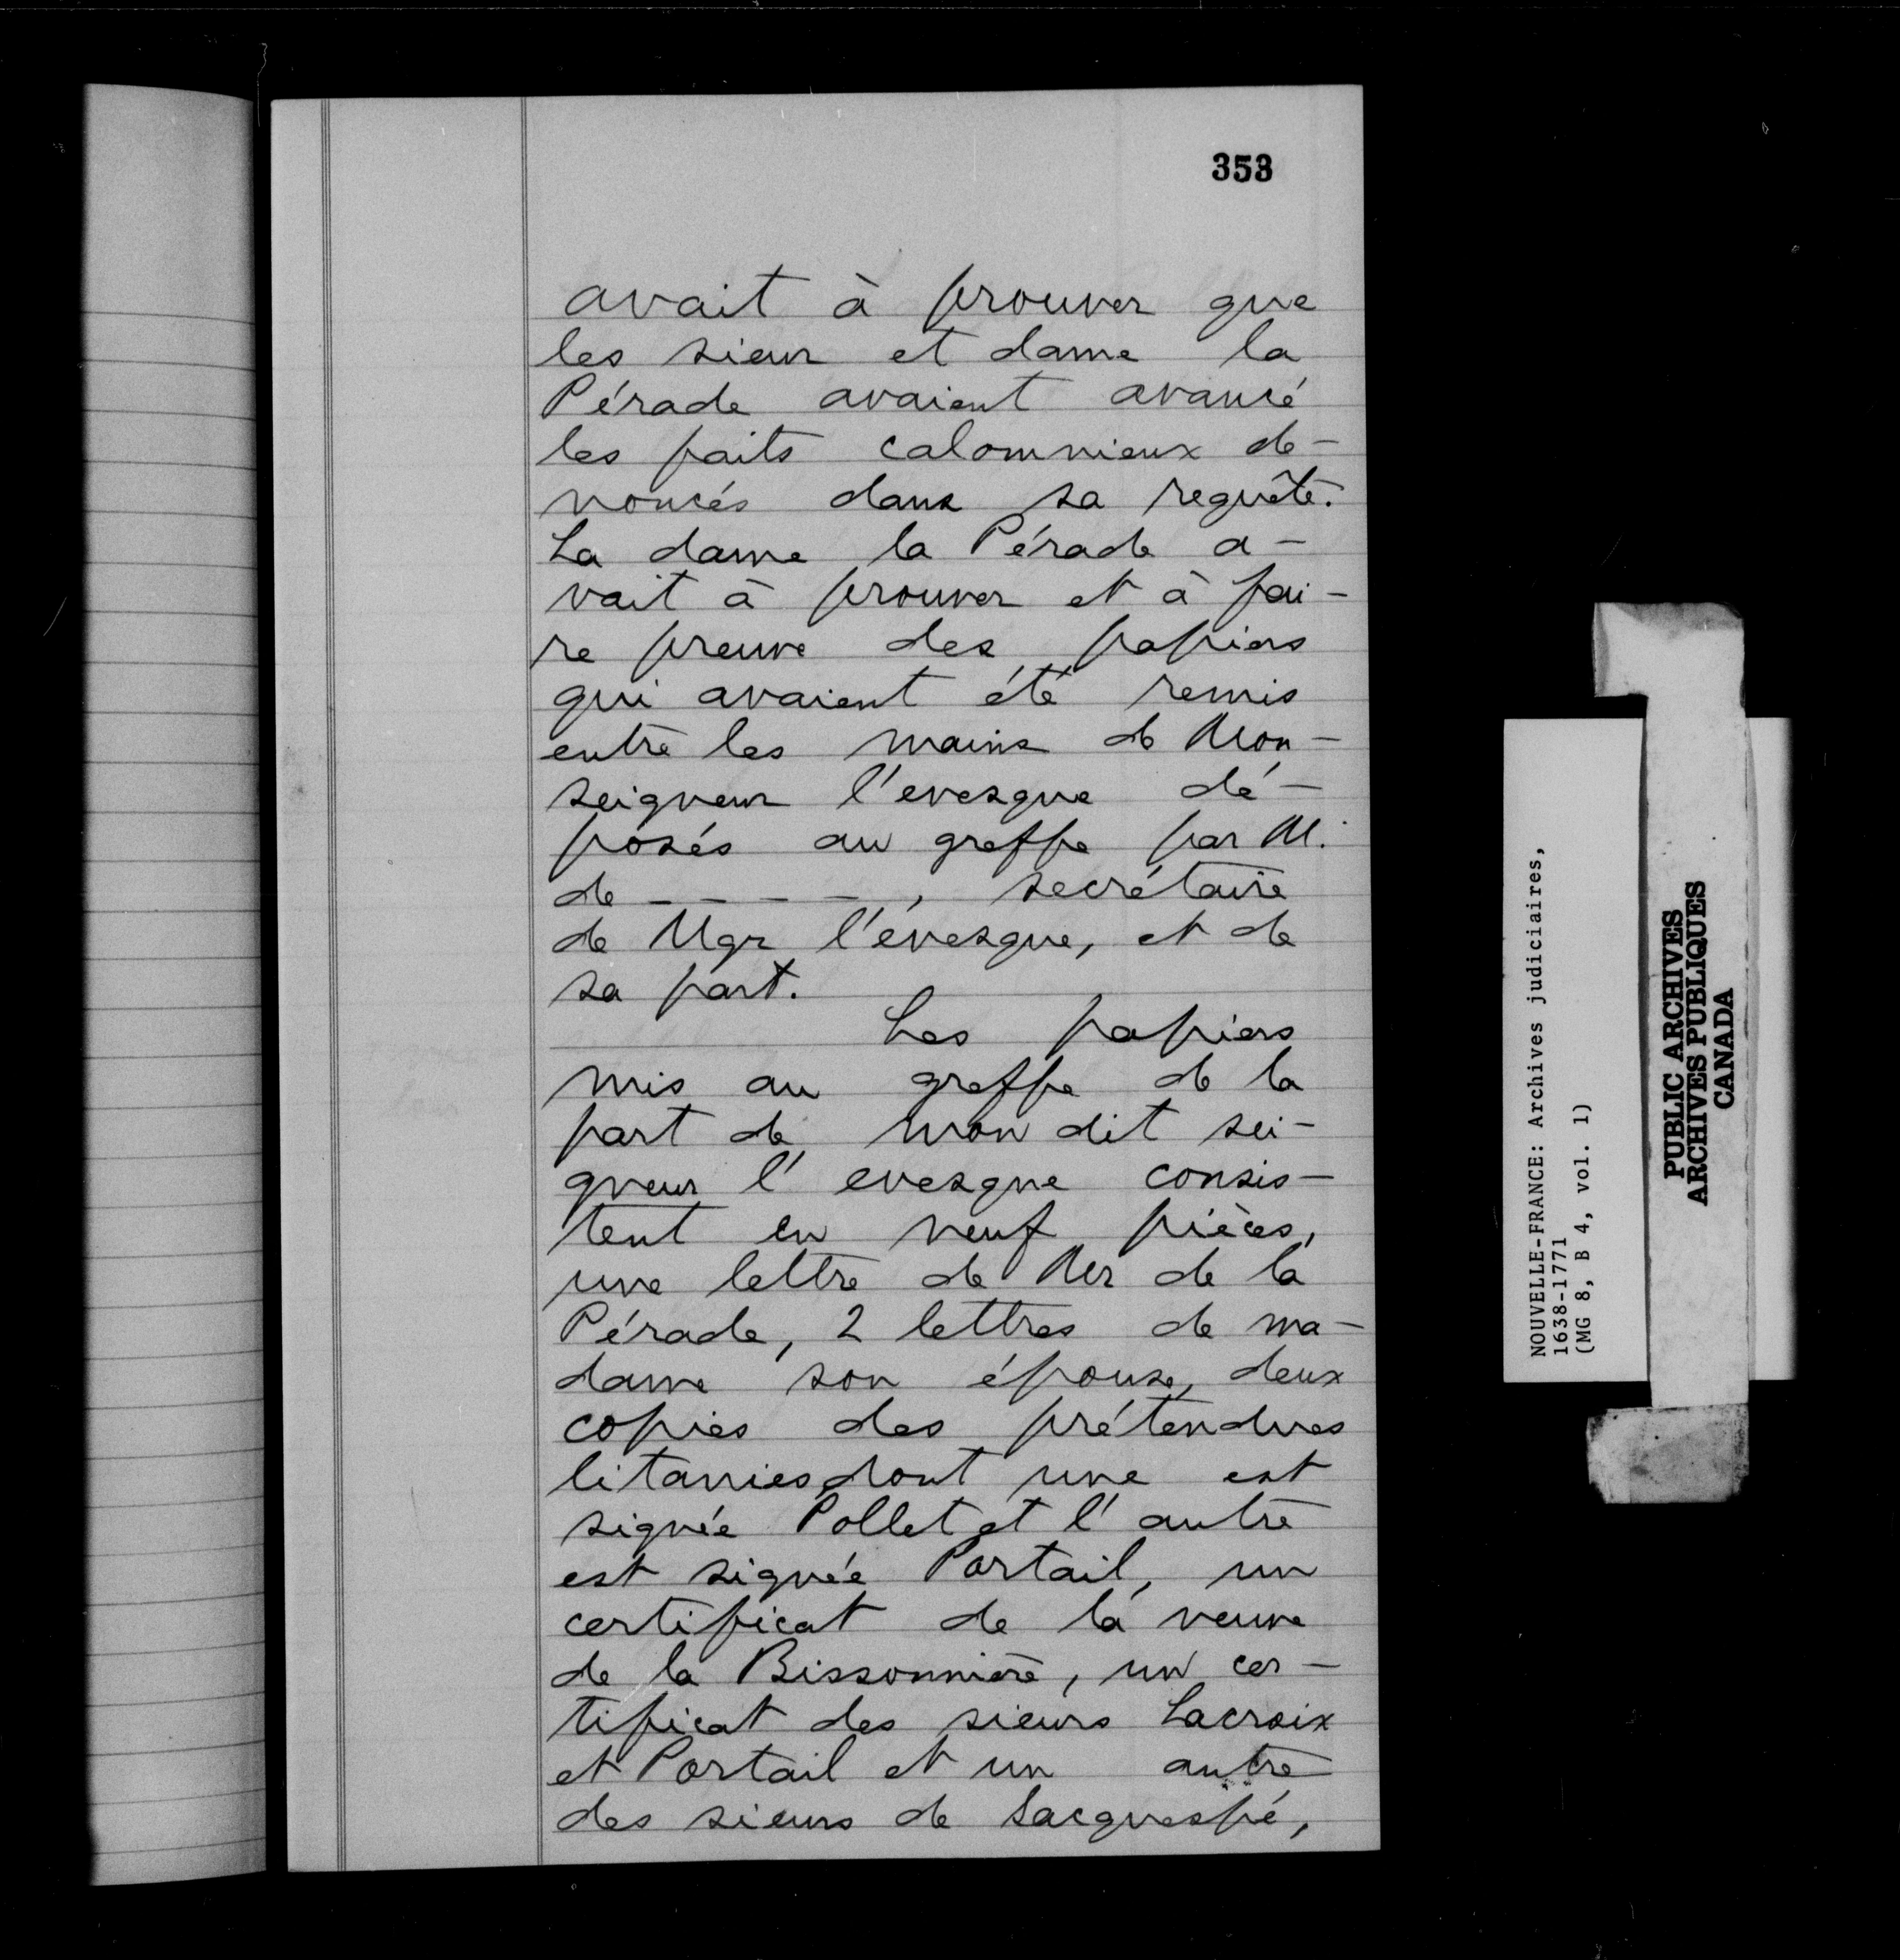 353
avait à prouver que
les sieur et dame la
Pérade avaient avancé
les faits calomnieux de-
noncés dans sa requête.
La dame la Pérade a-
vait à prouver et à fai-
re preuve des papiers
qui avaient été remis
entre les mains de Mon-
seigneur l'evesque dé-
posés au greffe par M.
de - - - - -, secrétaire
de Mgr l'evesque, et de
sa part.
Les papiers
mis au greffe de la
part de mon dit sei-
gneur l'evesque consis-
tent en neuf pièces,
une lettre de Mr de la
Pérade, 2 lettres de ma-
dame son épouse, deux
copies des prétendues
litanies dont une est
signée Pollet et l'autre
est signée Portail, un
certificat de la veuve
de la Bissonnière, un cer-
tificat des sieurs Lacroix
et Portail et un autre
des sieurs de Lacquespé,
NOUVELLE-FRANCE: Archives judiciaires,
1638-1771
(MG 8, B 4, vol. 1)
PUBLIC ARCHIVES
ARCHIVES PUBLIQUES
CANADA